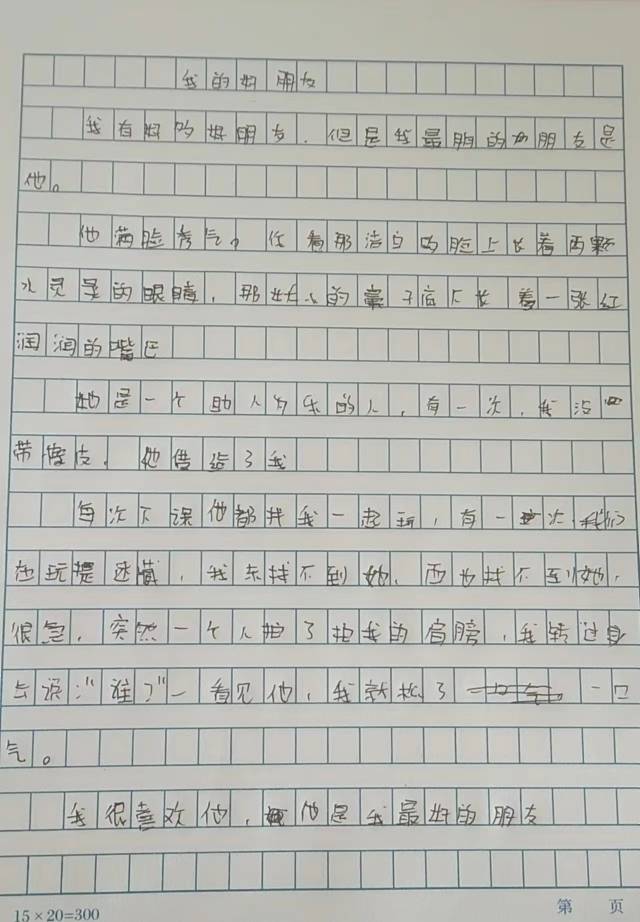 我的好朋友
我有好的好朋友.但是我最朋的好朋友是
他。
他满脸秀气。在看那洁白的脸上长着两颗
水灵灵的眼睛,那小小的鼻子底下长着一张红
润润的嘴巴
她是一个助人为乐的人,有一次,我没
带橡皮.他借给了我
每次下课他都找我一起玩,有一次我们
在玩捉迷藏,我东找不到她,西也找不到她,
很急.突然一个人拍了拍我的肩膀,我转过身
去说:"谁?"一看见他,我就松了一口
气。
我很喜欢他,他是我最好的朋友
15×20=300
第 页